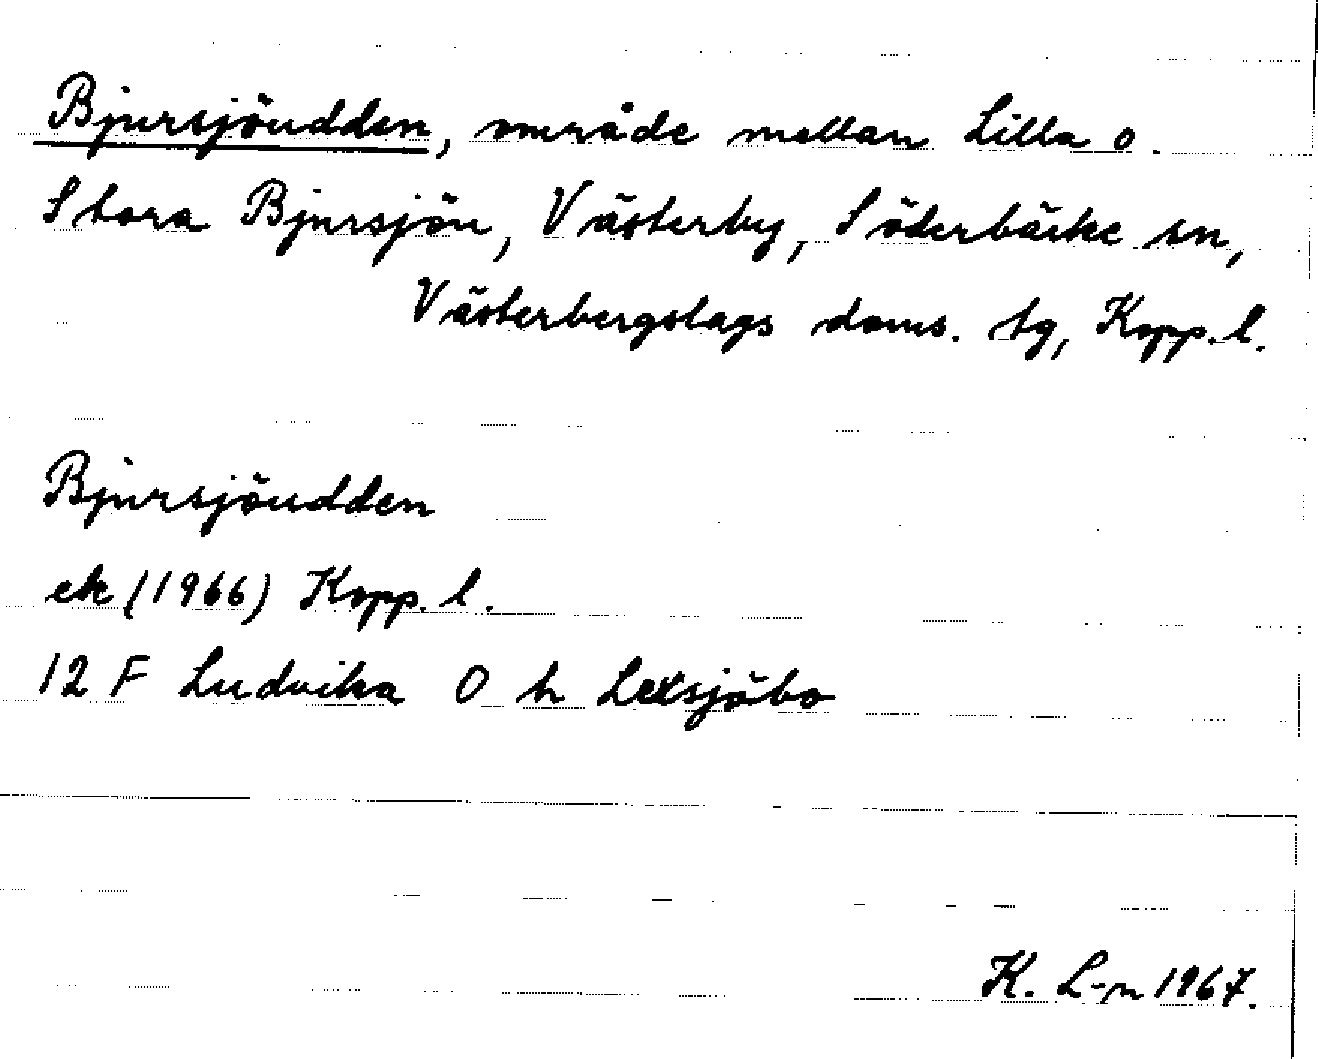 Bjursjöudden, område mellan Lilla o.
Stora Bjursjön, Västerby, Söderbärke sn,
Västerbergslags doms. tg, Kopp. l.
Bjursjöudden
ek (1966) Kopp. l.
12 F Ludvika 0 h Lexsjöbo
K. L-n 1967.